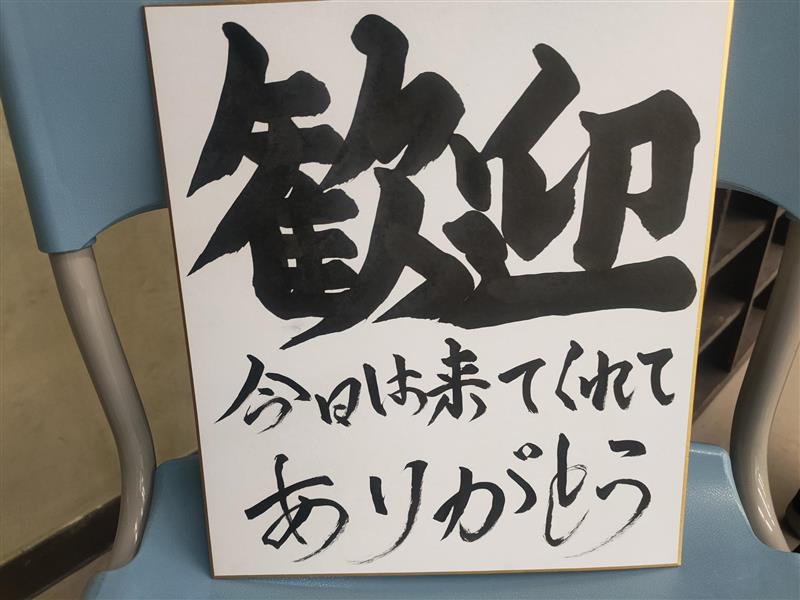 歓迎
今日は来てくれて
ありがとう